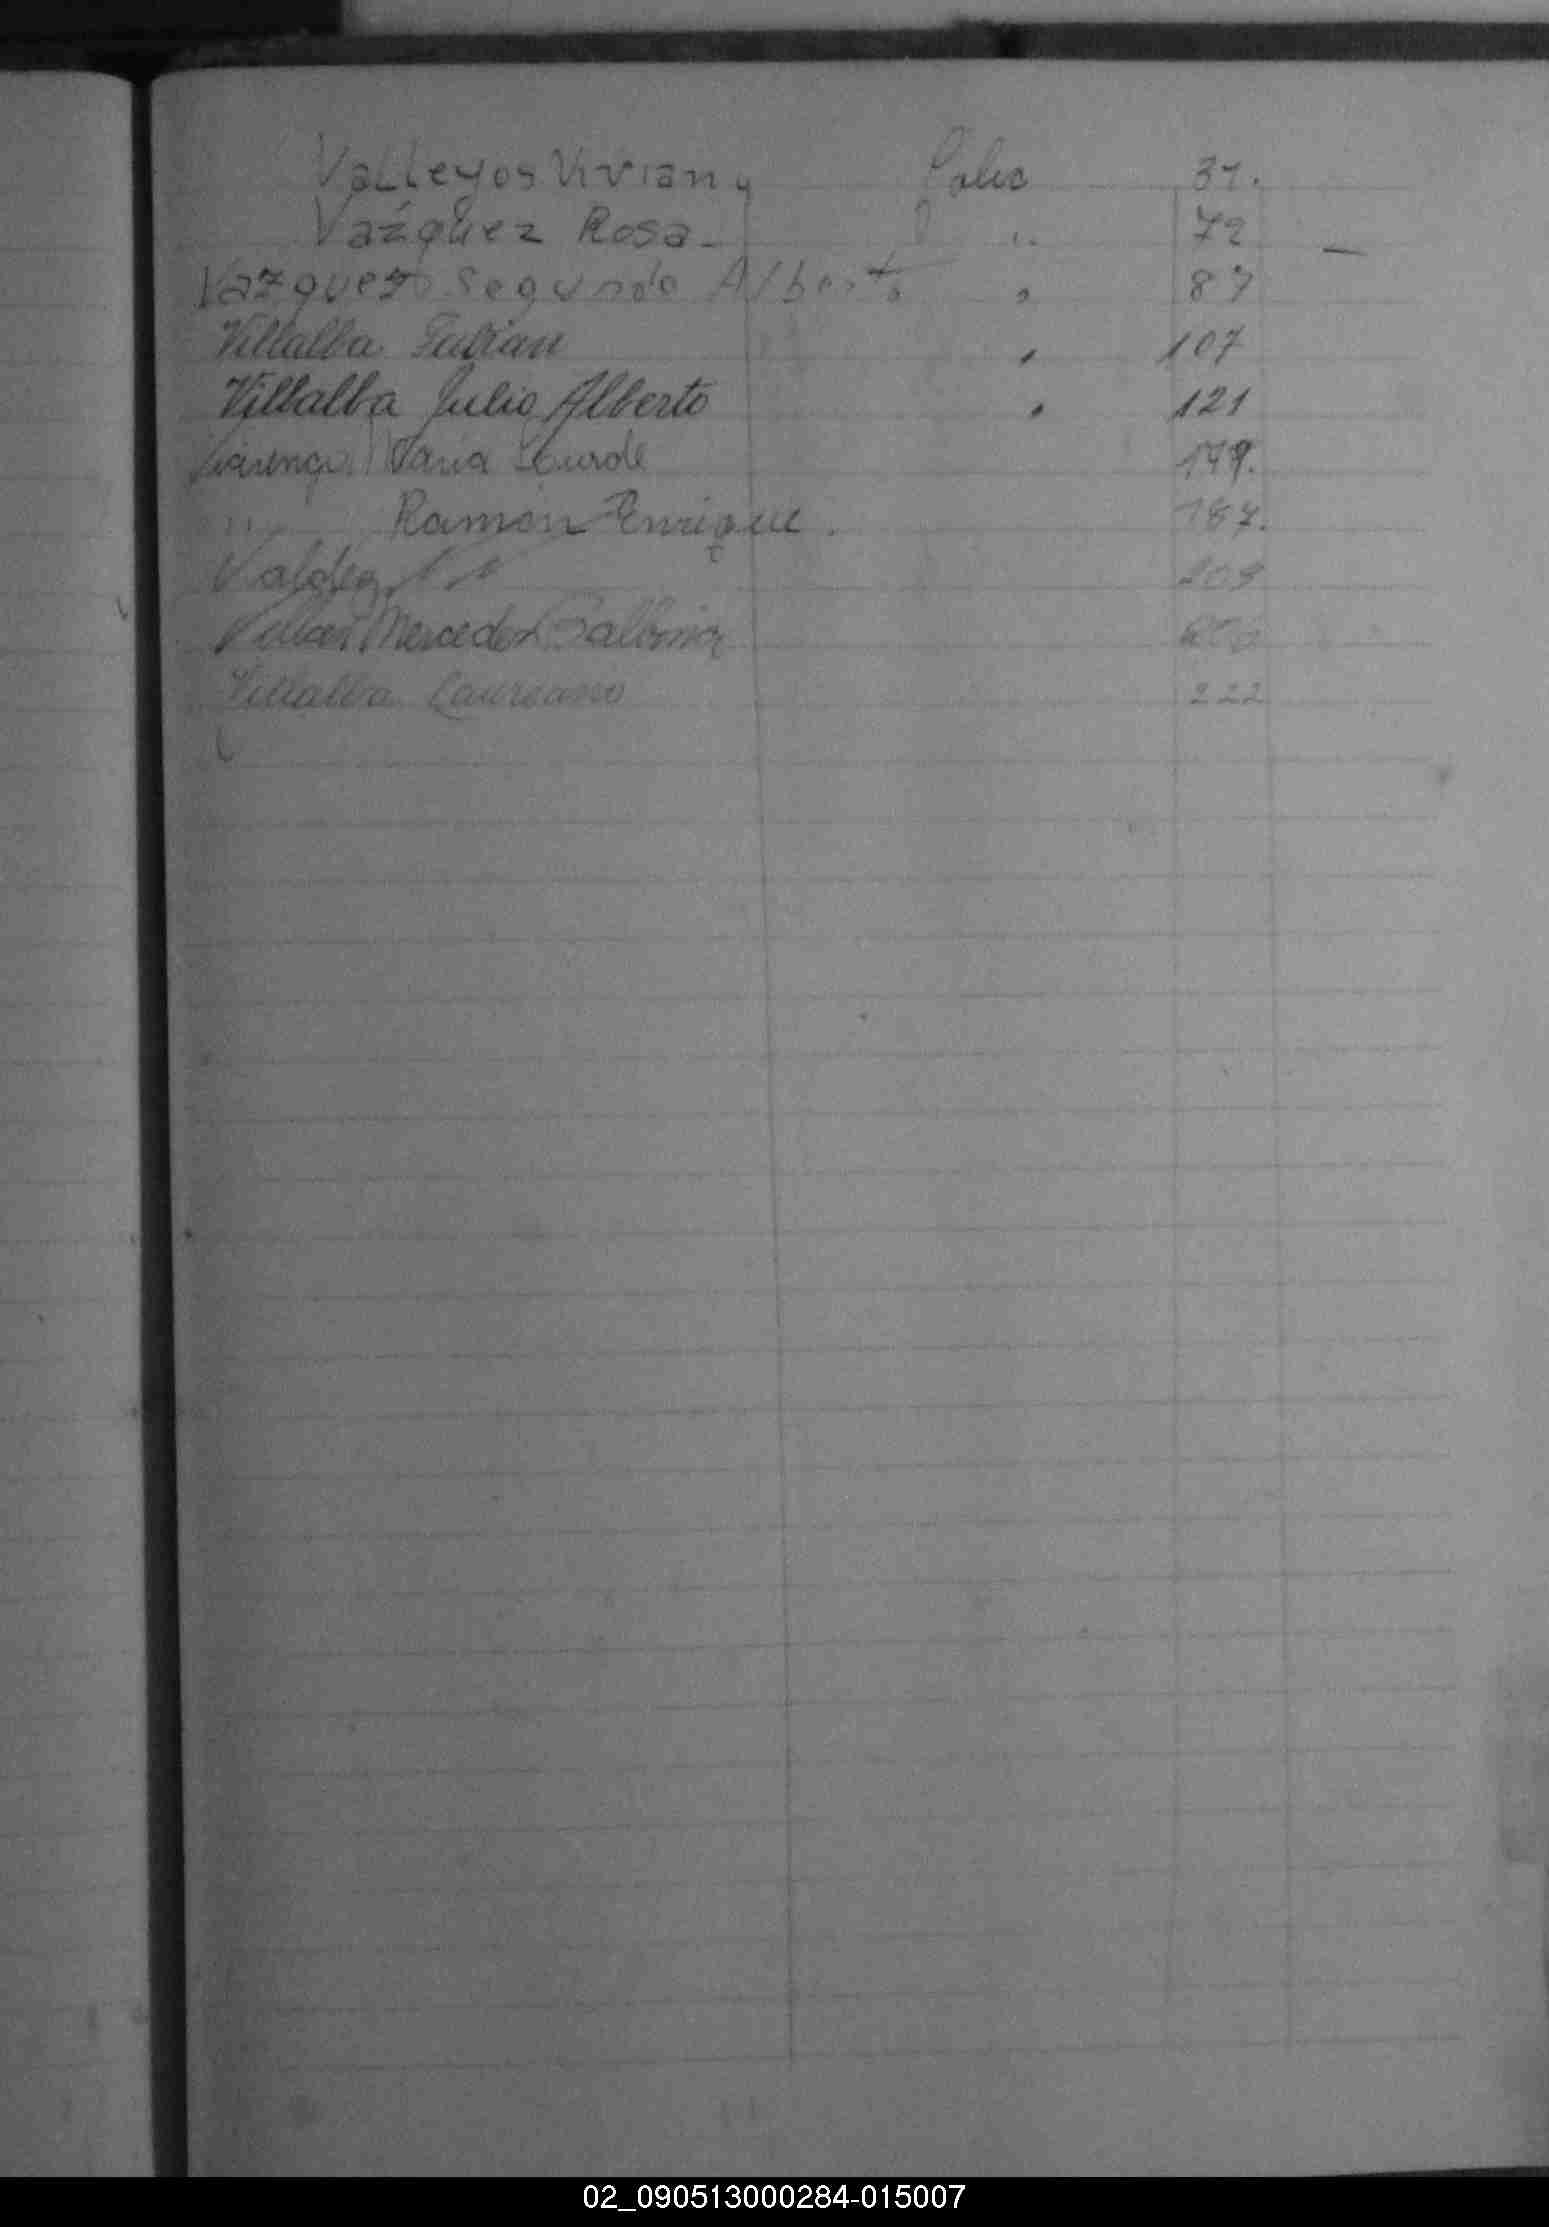 Valleyos Vivian y Folio 37.
Vázquez Rosa - " 72 —
Vazquez Segundo Alberto " 87
Villalba Fabian " 107
Villalba Julio Alberto " 121
Maria Lourde 179.
" Ramón Enrique . 187.
Valdez N N 209
Mercedes Balbina
Villalba Laureano 222
02_090513000284-015007